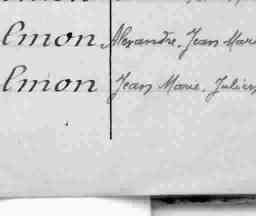 lmon Alexandre. Jean Mari
lmon Jean Marie. Julien